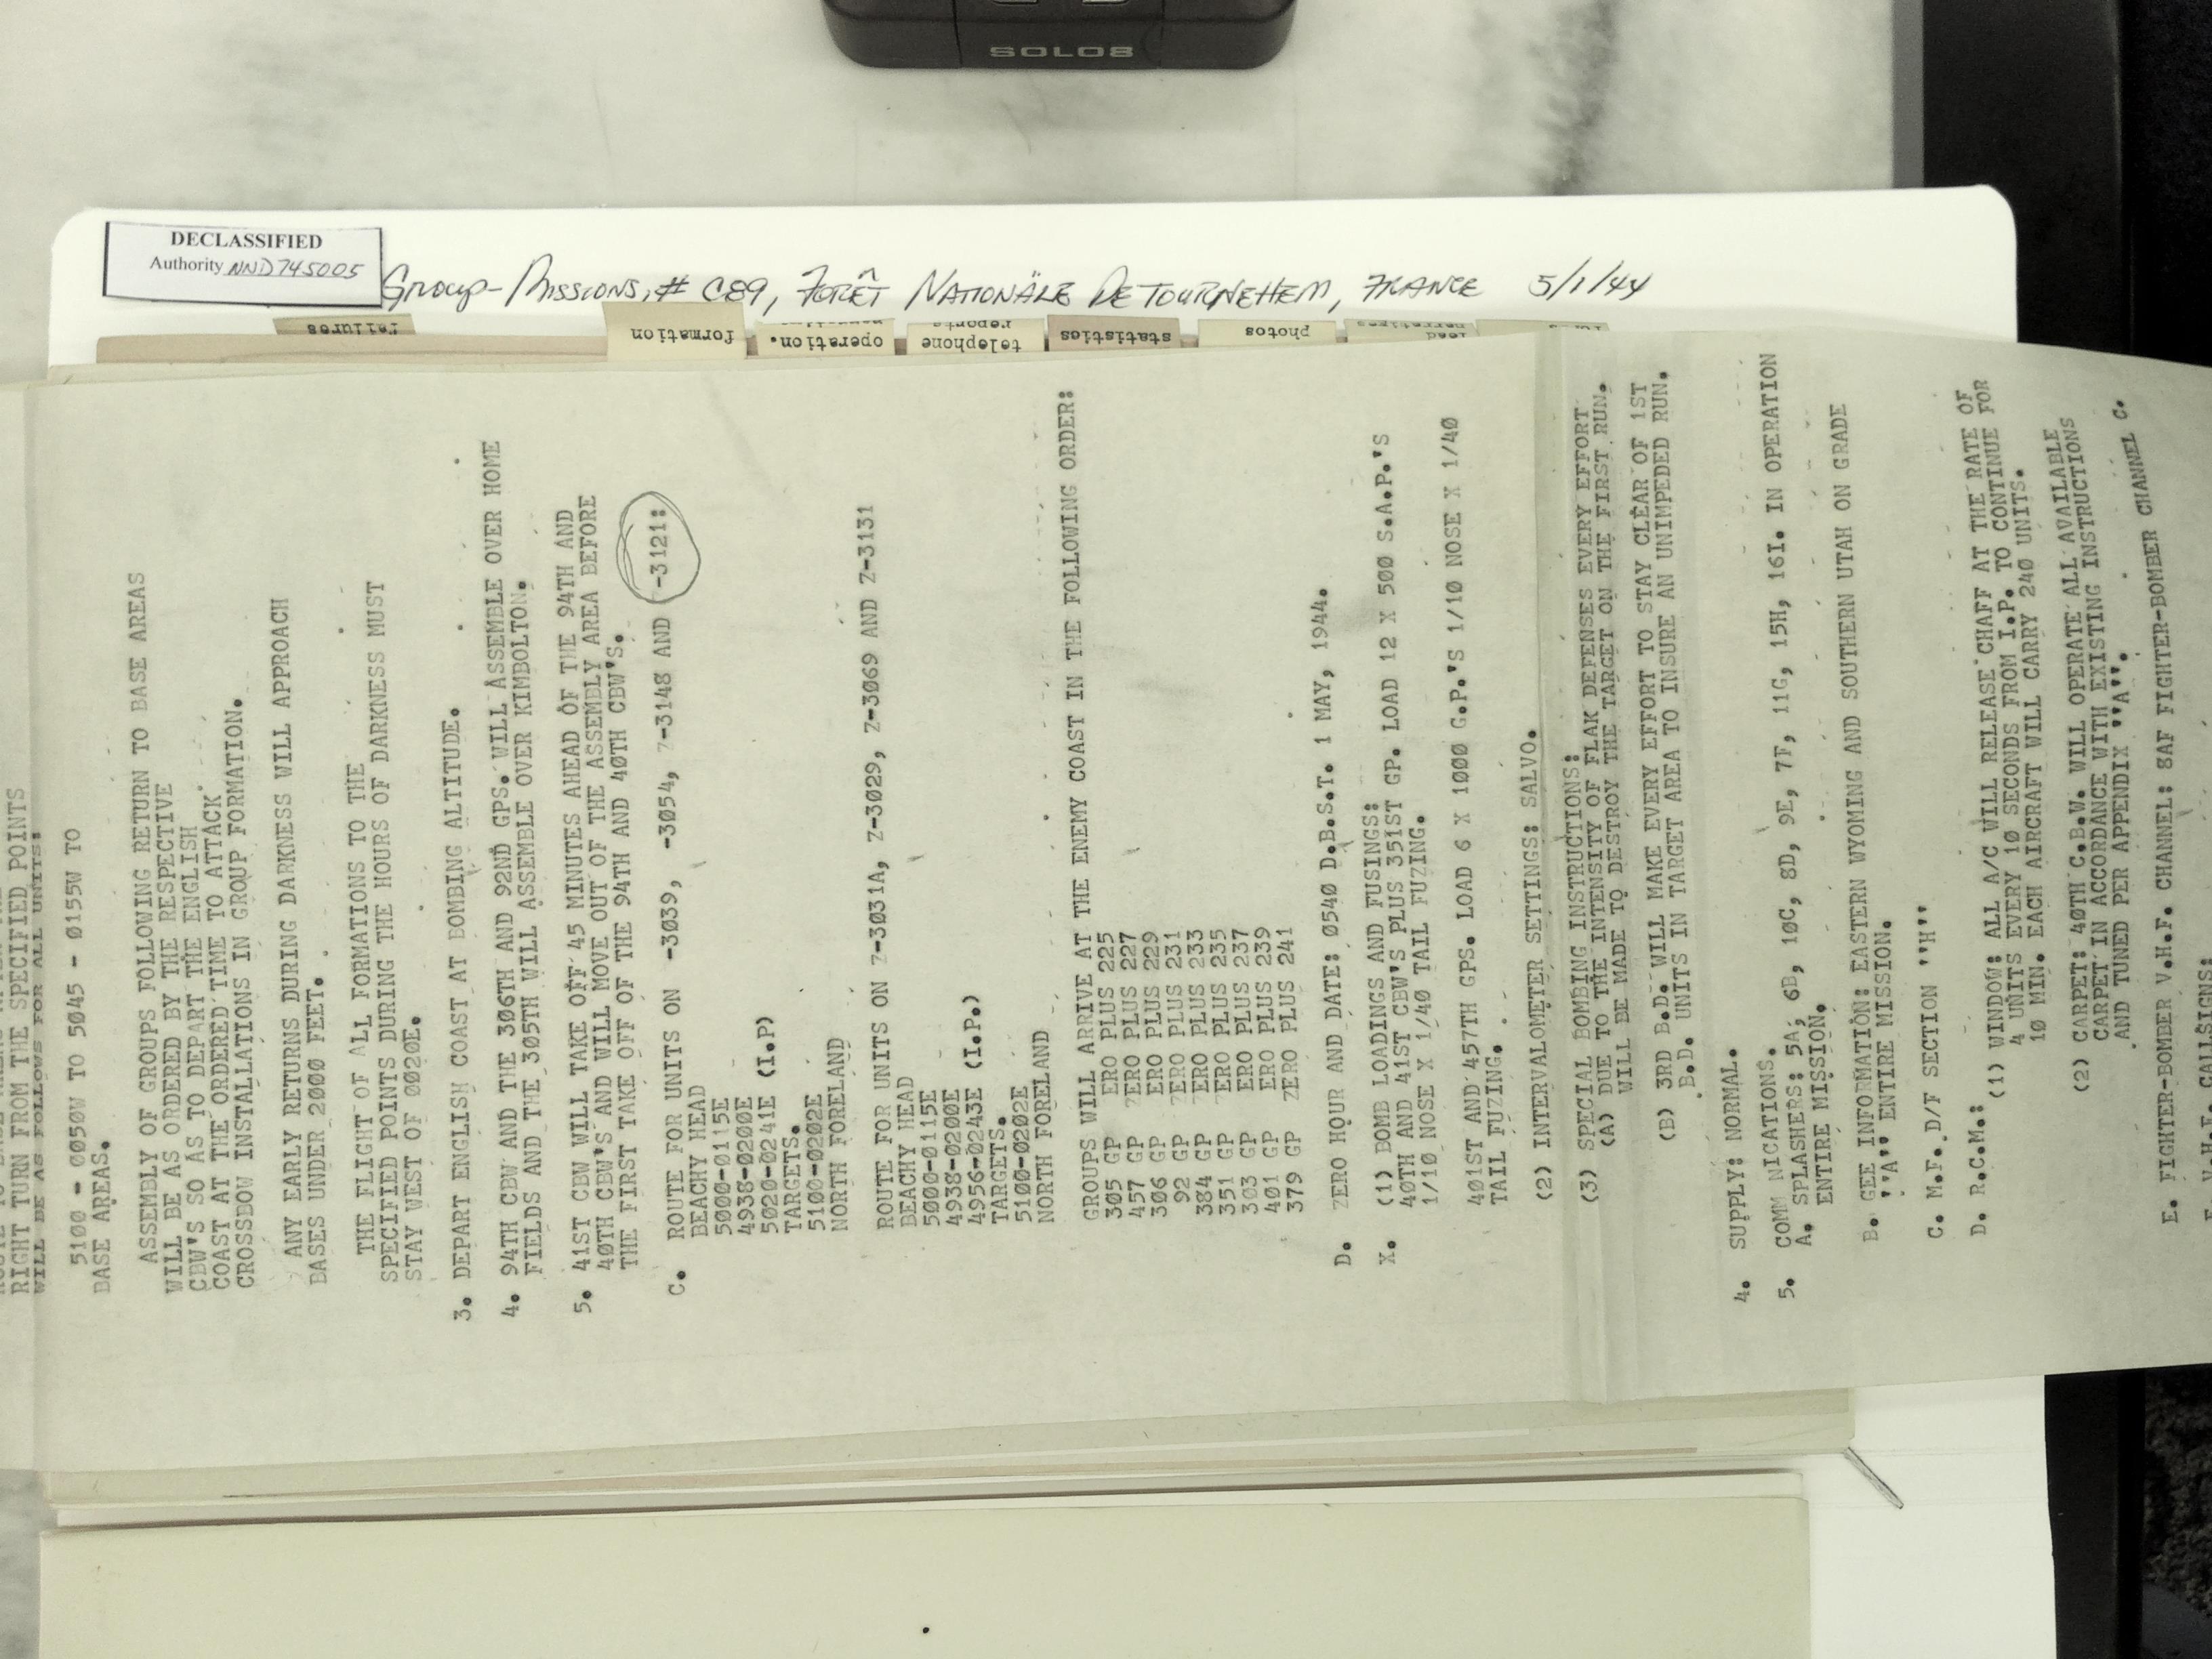 SOLO8
DECLASSIFIED
Authority NND745005
Group-Missions, # C89, FORÊT NATIONÄLE DE TOURNEHEM, FRANCE 5/1/44
failures
formation
operation.
telephone
reports
statistics
photos
lead
narratives
RIGHT TURN FROM THE SPECIFIED POINTS
WILL BE AS FOLLOWS FOR ALL UNITS:
5100 - 0050W TO 5045 - 0155W TO
BASE AREAS.
ASSEMBLY OF GROUPS FOLLOWING RETURN TO BASE AREAS
WILL BE AS ORDERED BY THE RESPECTIVE
CBW'S SO AS TO DEPART THE ENGLISH
COAST AT THE ORDERED TIME TO ATTACK
CROSSBOW INSTALLATIONS IN GROUP FORMATION.
ANY EARLY RETURNS DURING DARKNESS WILL APPROACH
BASES UNDER 2000 FEET.
THE FLIGHT OF ALL FORMATIONS TO THE
SPECIFIED POINTS DURING THE HOURS OF DARKNESS MUST
STAY WEST OF 0020E.
3. DEPART ENGLISH COAST AT BOMBING ALTITUDE.
4. 94TH CBW AND THE 306TH AND 92ND GPS. WILL ASSEMBLE OVER HOME
FIELDS AND THE 305TH WILL ASSEMBLE OVER KIMBOLTON.
5. 41ST CBW WILL TAKE OFF 45 MINUTES AHEAD OF THE 94TH AND
40TH CBW'S AND WILL MOVE OUT OF THE ASSEMBLY AREA BEFORE
THE FIRST TAKE OFF OF THE 94TH AND 40TH CBW'S.
C. ROUTE FOR UNITS ON -3039, -3054, 7-3148 AND -3121:
BEACHY HEAD
5000-0115E
4938-0200E
5020-0241E (I.P)
TARGETS.
5100-0202E
NORTH FORELAND
ROUTE FOR UNITS ON Z-3031A, Z-3029, Z-3069 AND Z-3131
BEACHY HEAD
5000-0115E
4938-0200E
4956-0243E (I.P.)
TARGETS.
5100-0202E
NORTH FORELAND
GROUPS WILL ARRIVE AT THE ENEMY COAST IN THE FOLLOWING ORDER:
305 GP ERO PLUS 225
457 GP ZERO PLUS 227
306 GP ZERO PLUS 229
92 GP ZERO PLUS 231
384 GP ZERO PLUS 233
351 GP ZERO PLUS 235
303 GP ERO PLUS 237
401 GP ZERO PLUS 239
379 GP ZERO PLUS 241
D. ZERO HOUR AND DATE: 0540 D.B.S.T. 1 MAY, 1944.
X. (1) BOMB LOADINGS AND FUSINGS:
40TH AND 41ST CBW'S PLUS 351ST GP. LOAD 12 X 500 S.A.P.'S
1/10 NOSE X 1/40 TAIL FUZING.
401ST AND 457TH GPS. LOAD 6 X 1000 G.P.'S 1/10 NOSE X 1/40
TAIL FUZING.
(2) INTERVALOMETER SETTINGS: SALVO.
(3) SPECIAL BOMBING INSTRUCTIONS:
(A) DUE TO THE INTENSITY OF FLAK DEFENSES EVERY EFFORT
WILL BE MADE TO DESTROY THE TARGET ON THE FIRST RUN.
(B) 3RD B.D. WILL MAKE EVERY EFFORT TO STAY CLEAR OF 1ST
B.D. UNITS IN TARGET AREA TO INSURE AN UNIMPEDED RUN.
4. SUPPLY: NORMAL.
5. COMM NICATIONS.
A. SPLASHERS: 5A, 6B, 10C, 8D, 9E, 7F, 11G, 15H, 16I. IN OPERATION
ENTIRE MISSION.
B. GEE INFORMATION: EASTERN WYOMING AND SOUTHERN UTAH ON GRADE
''A'' ENTIRE MISSION.
C. M.F. D/F SECTION ''H''
D. R.C.M.:
(1) WINDOW: ALL A/C WILL RELEASE CHAFF AT THE RATE OF
4 UNITS EVERY 10 SECONDS FROM I.P. TO CONTINUE FOR
10 MIN. EACH AIRCRAFT WILL CARRY 240 UNITS.
(2) CARPET: 40TH C.B.W. WILL OPERATE ALL AVAILABLE
CARPET IN ACCORDANCE WITH EXISTING INSTRUCTIONS
AND TUNED PER APPENDIX ''A''.
E. FIGHTER-BOMBER V.H.F. CHANNEL: 8AF FIGHTER-BOMBER CHANNEL C.
F. V.H.F. CALLSIGNS: